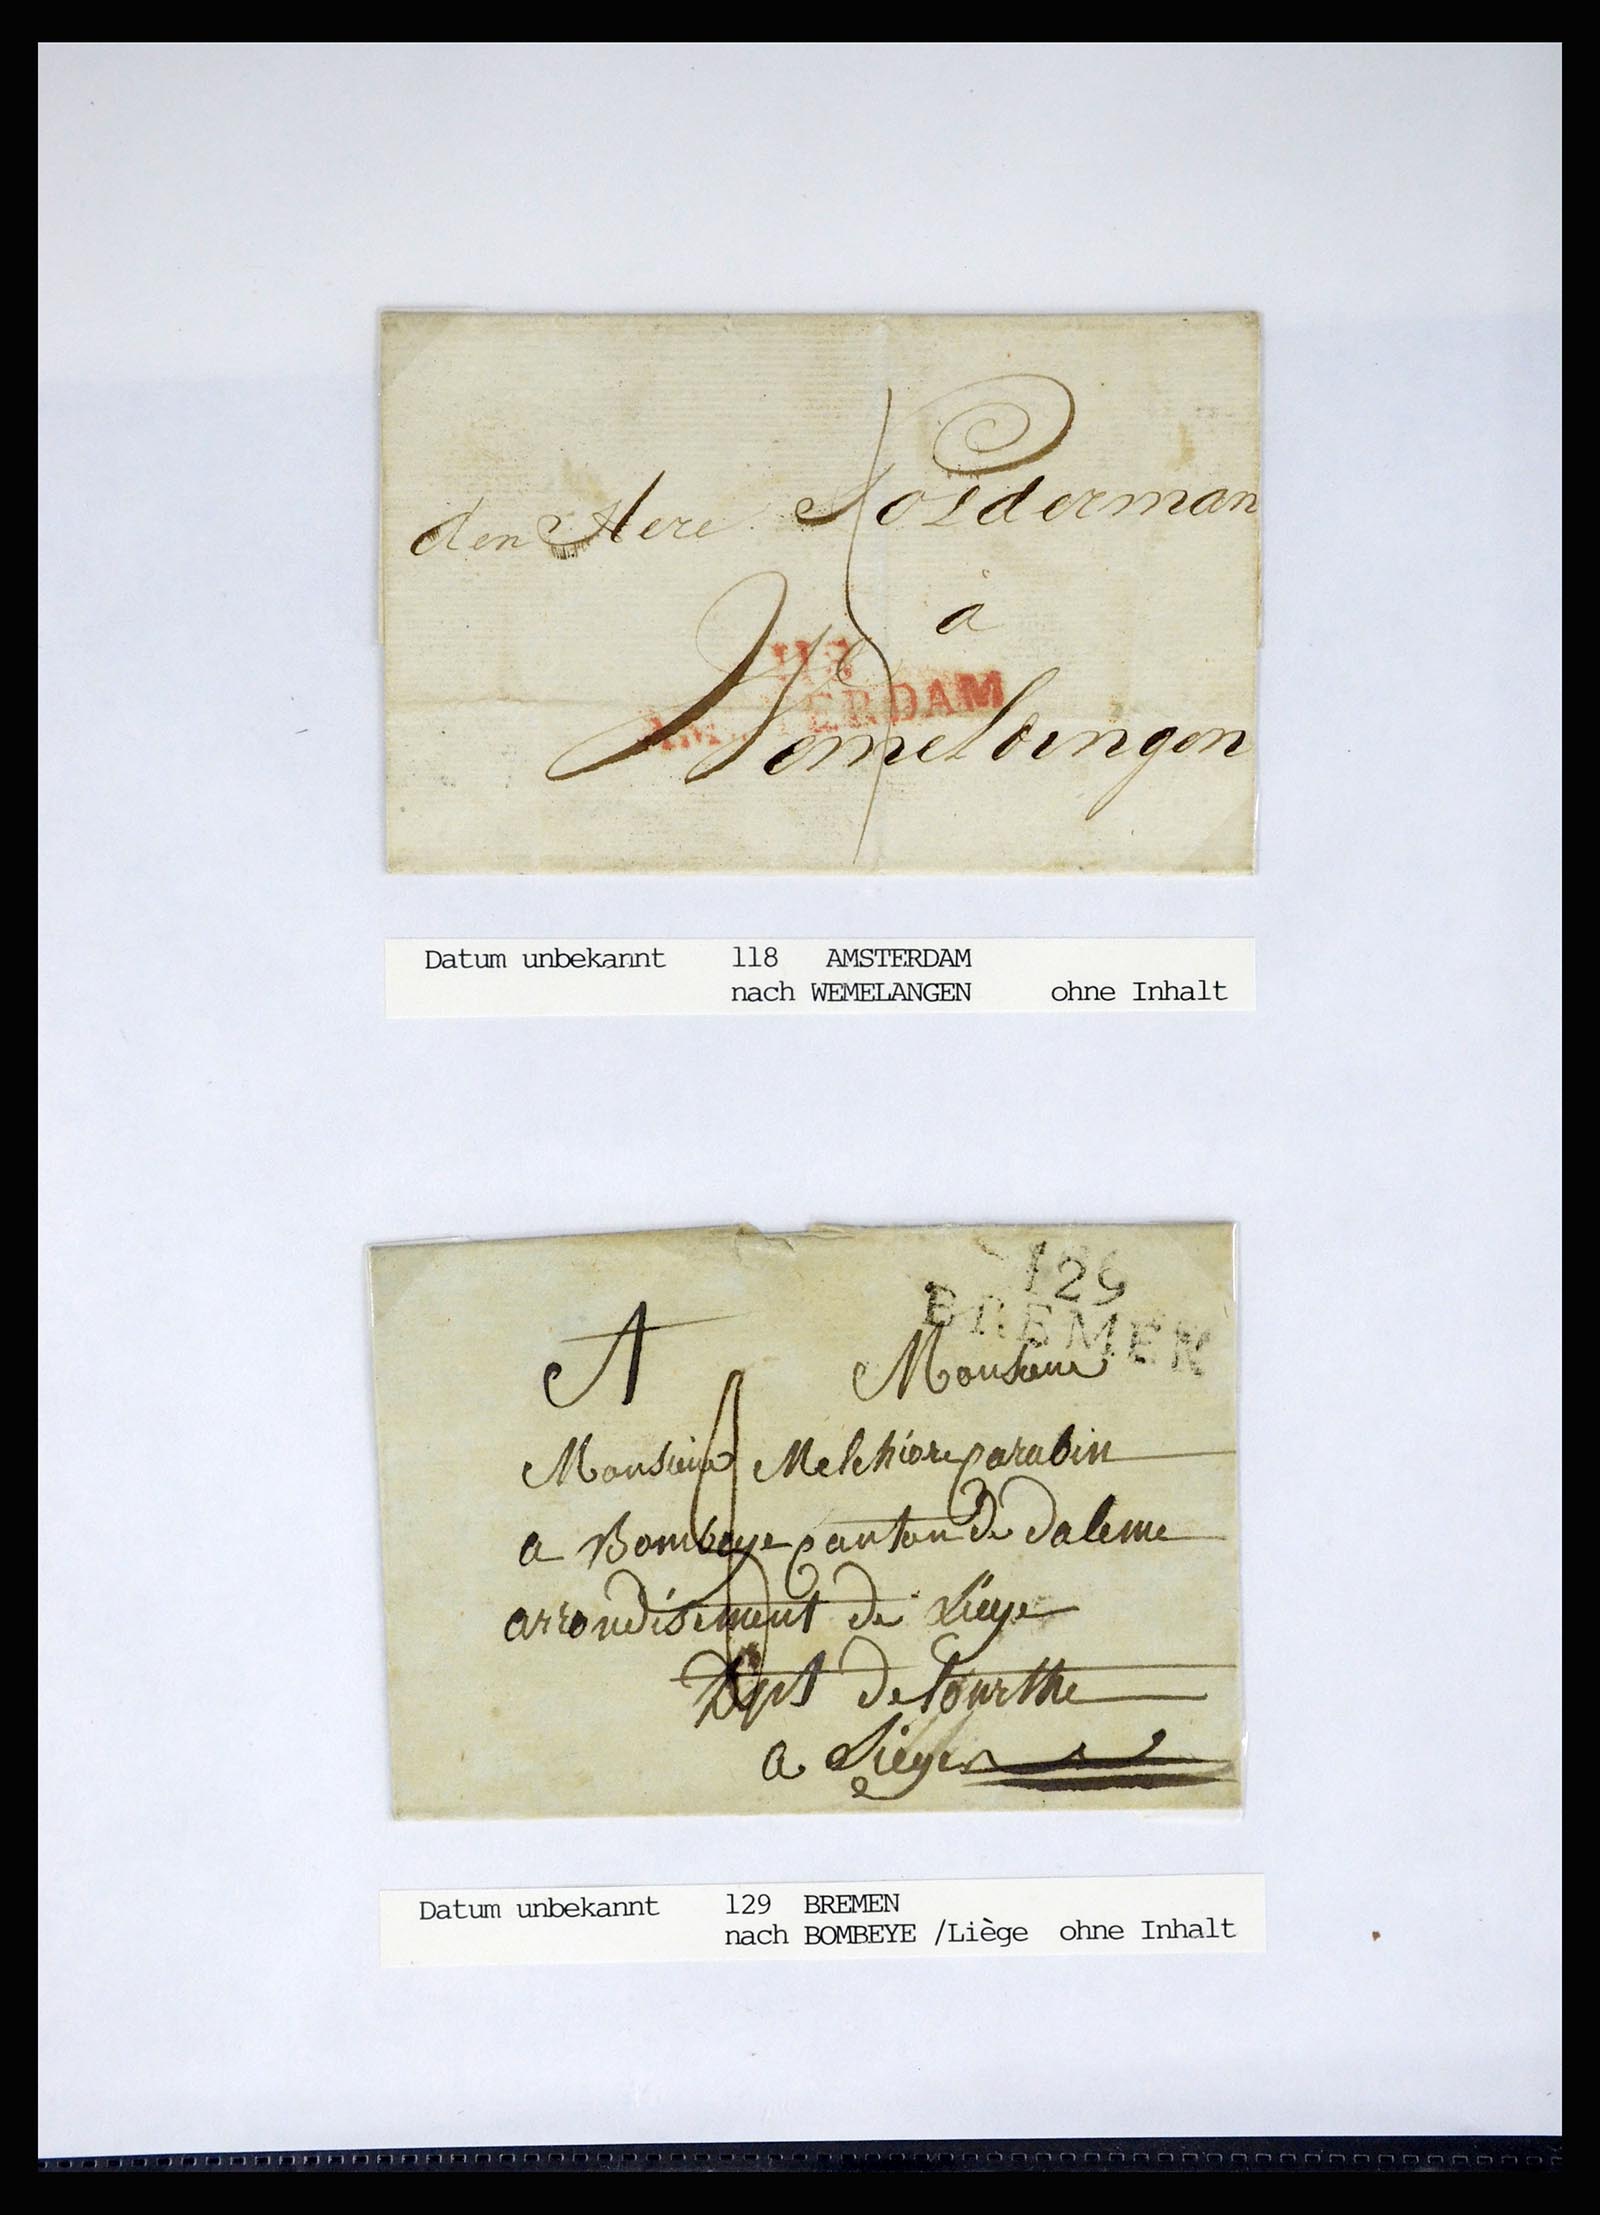 den Here Polderman
à
118
AMSTERDAM
Wemeldingen
Datum unbekannt 118 AMSTERDAM
nach WEMELANGEN ohne Inhalt
129
BREMEN
A Monsieur
Monsieur Melchior parabin
a Bombeye canton de daleme
arrondisement de Liege
Dept de Lourthe
a Liege
Datum unbekannt 129 BREMEN
nach BOMBEYE /Liège ohne Inhalt